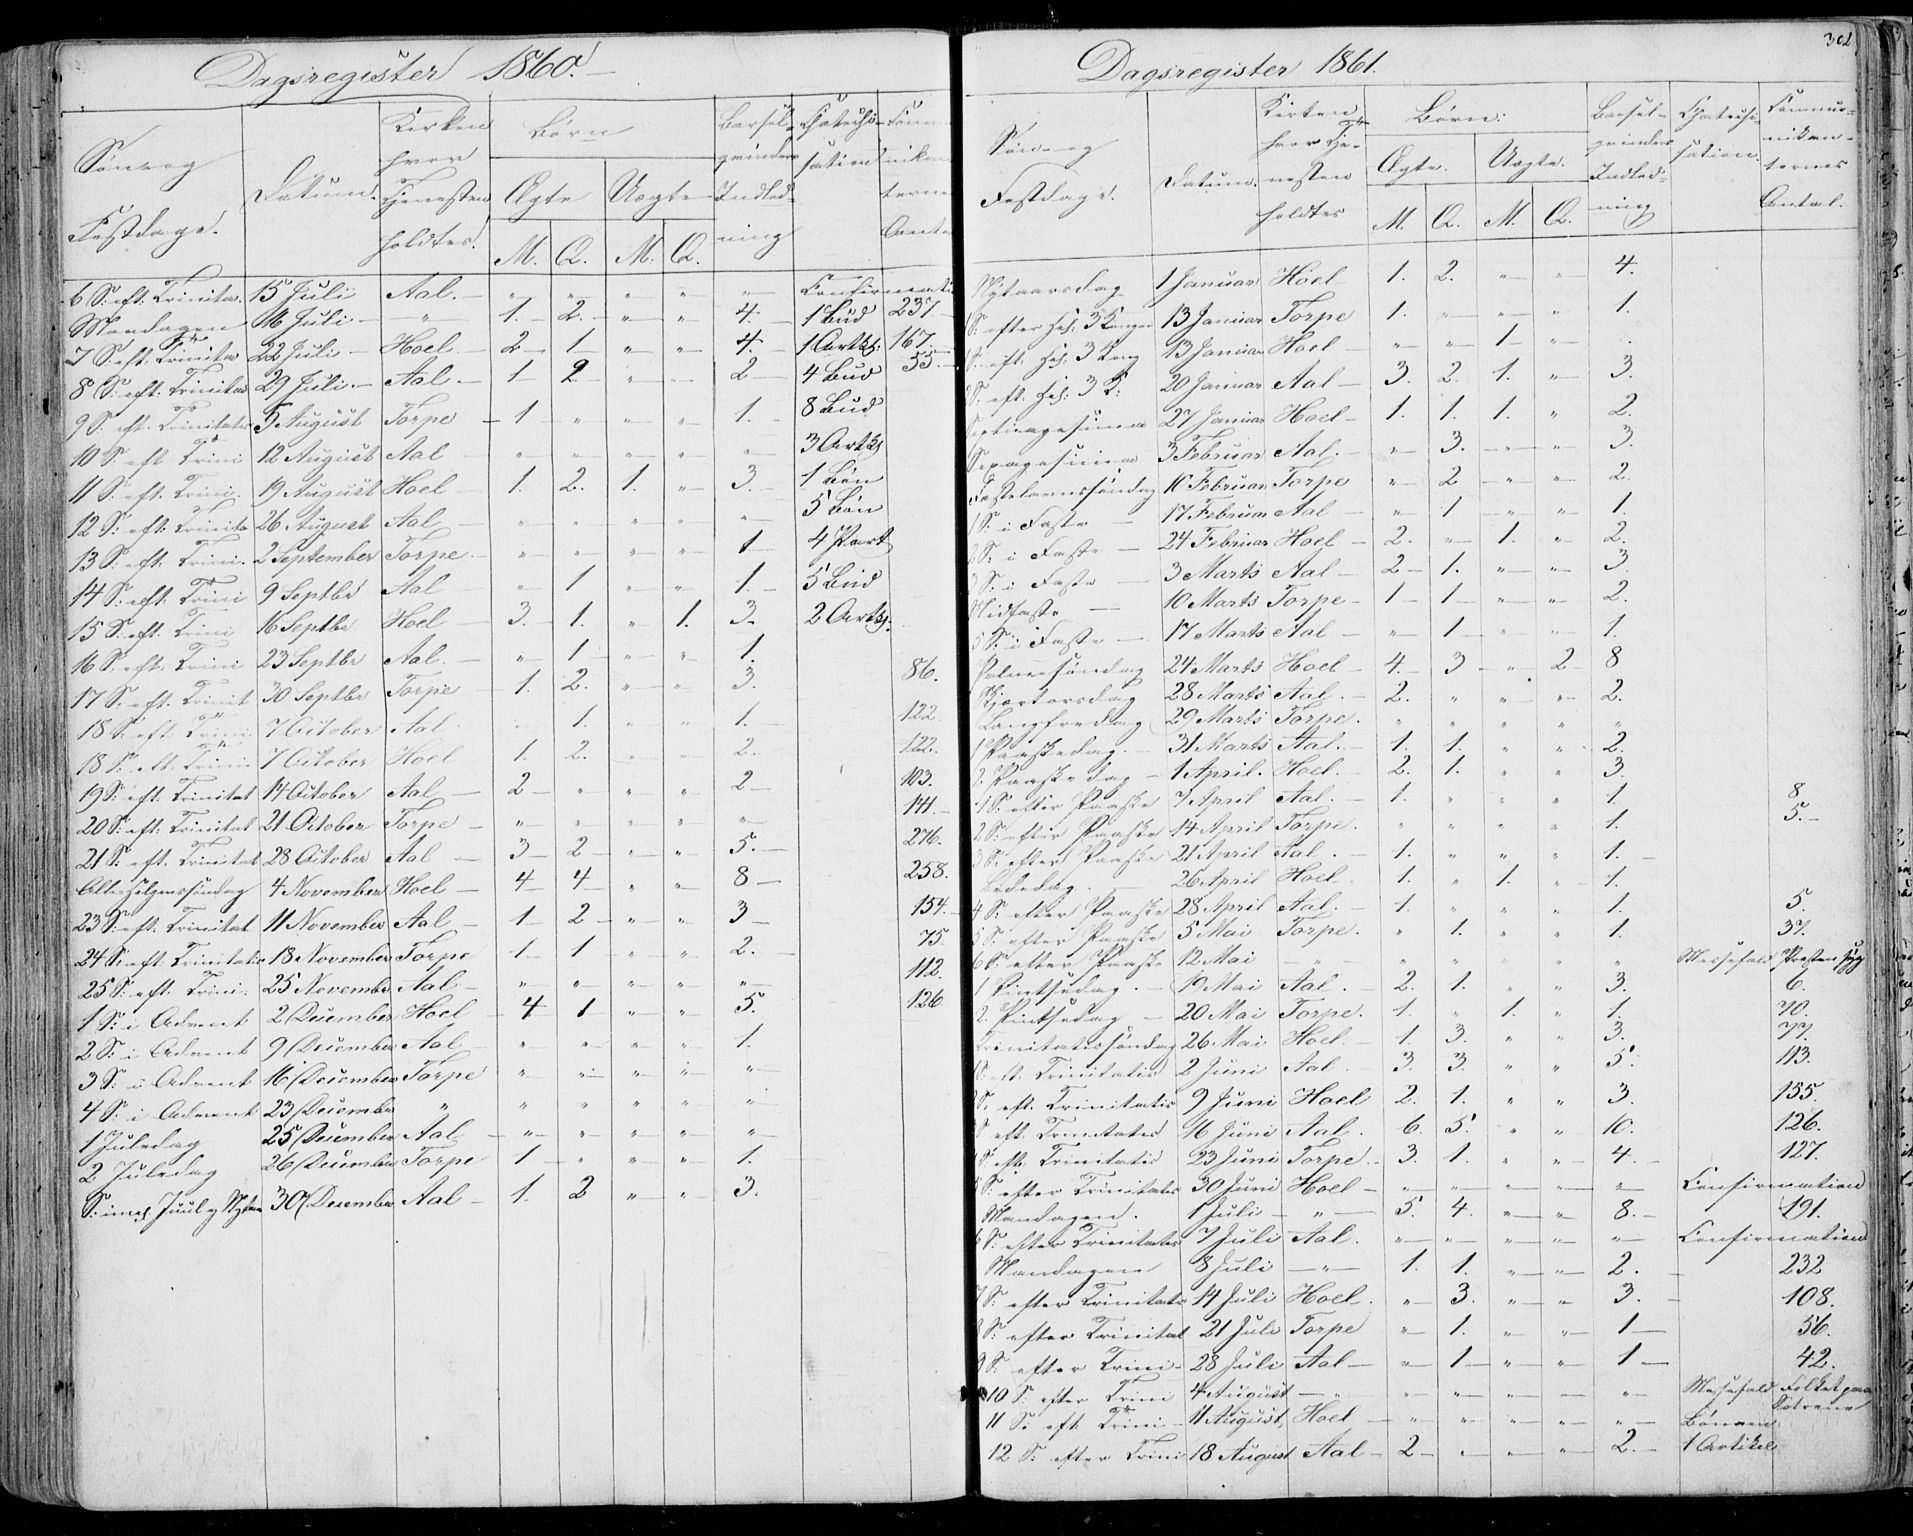 Dagsregister 1860.
Søn- og Festdage. | Datum. | Kirken hvor Tjenesten holdtes. | Børn | Barselqvinders Indledning | Chatechisation | Communikanternes Antal
Ægte | Uægte
M. | Q. | M. | Q.
6 S. eft. Trinita. 15 Juli Aal. „ „ „ „ „ Confirmati
Mandagen 16 Juli „ 1. 2. „ „ 4. 1 Bud 237
7 S. eft. Trinita 22 Juli Hoel 2 1 „ „ 4. 1 Artkl. 167.
8 S. eft. Trinitas 29 Juli Aal 1 2 „ 2 4 Bud 55.
9 S. eft. Trinitatis 5 August Torpe 1 „ „ „ 1. 8 Bud
10 S. eft. Trini 12 August Aal „ „ „ „ „ 3 Artkl
11 S. eft. Trini. 19 August Hoel 1. 2. 1. „ 3. 1 Bøn
12 S. eft. Trinita 26 August Aal „ „ „ „ „ 5 Bøn
13 S. eft. Trini. 2 September Torpe „ „ „ „ 1 4 Part
14 S. eft. Trini 9 Septbr Aal „ 1 „ „ 1. 5 Bud
15 S. eft. Trini 16 Septbr Hoel 3. 1. „ 1. 3. 2 Artkl.
16 S. eft. Trini 23 Septbr Aal. „ 1 „ „ 1.
17 S. eft. Trinit 30 Septbr Torpe 1. 2. „ „ 3. 86.
18 S. eft. Trini 7 October Aal „ 1. „ „ 1. 122.
18 S. eft. Trini 7 October Hoel 1. 2. „ „ 2. 122.
19 S. eft. Trinitat 14 October Aal 2 „ „ „ 2 103.
20 S. eft. Trinitat 21 October Torpe „ „ „ „ „ 141.
21 S. eft. Trinitat 28 October Aal 3 2 „ „ 5. 276.
Allehelgenssøndag 4 November Hoel 4 4 „ „ 8 258.
23 S. eft. Trinitat 11 November Aal 1 2 „ „ 3 154.
24 S. eft. Trinitatis 18 November Torpe 1 1 „ „ 2. 75.
25 S. eft. Trini. 25 November Aal „ „ „ „ „ 112.
1 S. i Advent 2 December Hoel 4 1 „ „ 5. 126
2 S. i Advent 9 December Aal „ „ „ „ 1.
3 S. i Advent 16 December Torpe „ „ „ „ „
4 S. i Advent 23 December „ „ „ „ „ „
1 Juledag 25 December Aal „ „ „ „ „
2 Juledag 26 December Torpe 1 „ „ „ 1.
S. imel. Juul og Nytaar 30 December Aal 1. 2 „ „ 3.
302
Dagsregister 1861.
Søn- og Festdage. | Datum. | Kirken hvor Tjenesten holdtes | Børn: | Barselqvinders Indledning | Chatechisation. | Communikanternes Antal.
Ægte. | Uægte.
M. | Q. | M. | Q.
Nytaarsdag 1 Januar Hoel 1. 2. „ „ 4.
S. efter Hel. 3 Konger 13 Januar Torpe 1. „ „ „ 1.
S. eft. Hel. 3 Kong 13 Januar Hoel „ „ 1 „
S. eft. Hel. 3 K. 20 Januar Aal 3. 2. 1. „ 3.
Septuagesima 27 Januar Hoel 1. 1. 1. „ 2.
Sexagesima 3 Februar Aal. „ 3. „ „ 3.
Fastelavnssøndag 10 Februar Torpe „ 2 „ „ 2.
1 S. i Faste 17 Februar Aal „ 1 „ „ 1.
2 S. i Faste 24 Februar Hoel 2. „ 1. „ 2.
3 S. i Faste 3 Marts Aal 2 1. „ „ 3.
Midfaste 10 Marts Torpe 1 1 „ „ 2.
5 S. i Faste 17 Marts Aal „ 1 „ „ 1.
Palmesøndag 24 Marts Hoel 4. 3 „ 2 8
Skjærtorsdag 28 Marts Aal. 2. „ „ „ 2.
Langfredag 29 Marts Torpe. „ „ „ „ „
1 Paaskedag. 31 Marts Aal. 1. 1. „ „ 2.
2. Paaskedag 1 April. Hoel. 2. 1. „ „ 3.
1 S. efter Paaske 7 April Aal. 1. „ „ „ 1. 8
2 S. efter Paaske 14 April Torpe. „ „ „ „ 1. 5.
3 S. efter Paaske 21 April Aal. 1. „ „ „ 1.
Bededag. 26 April Hoel. 1. „ 1. „ 1.
4 S. efter Paaske 28 April Aal. 1. „ „ „ 1. 5.
5 S. efter Paaske 5 Mai Torpe. „ 1. „ „ 1. 37.
6 S. efter Paaske 12 Mai „ „ „ „ „ „ Messefald Presten syg
1 Pintsedag. 19 Mai Aal. 2. 1. „ „ 3. 6.
2. Pintsedag 20 Mai Torpe. 1. „ 1. „ 1. 70.
Trinitatissøndag 26 Mai Hoel. 1. 3. „ „ 3. 77.
1 S. eft. Trinitatis 2 Juni Aal. 3. 3. „ „ 5. 113.
S. eft. Trinitatis 9 Juni Hoel 2. 1. „ „ 3. 155.
S. eft. Trinitatis 16 Juni Aal. 6. 5. „ „ 10. 126.
S. eft. Trinitatis 23 Juni Torpe. 3. 1. „ „ 4. 127.
5 S. efter Trinitatis 30 Juni Hoel „ „ „ „ „ Confirmation
Mandagen. 1 Juli „ 5. 4. „ „ 8. 191.
6 S. efter Trinitatis 7 Juli Aal. „ „ „ „ „ Confirmation
Mandagen 8 Juli „ 1. 1. „ „ 2. 232
7 S. efter Trinitatis 14 Juli Hoel. „ 3. „ „ 3. 108.
8 S. efter Trinitat 21 Juli Torpe „ 1. „ „ 1 56.
9 S. efter Trini 28 Juli Aal „ 1 „ „ 1 42.
10 S. efter Trini 4 August „ „ „ „ „ „ Messefald Folket paa Støtrene
11 S. eft. Trini 11 August Hoel „ „ „ „ „ Bønnen
12 S. efter Trini 18 August Aal 2 „ „ „ 2. 1 Artikel